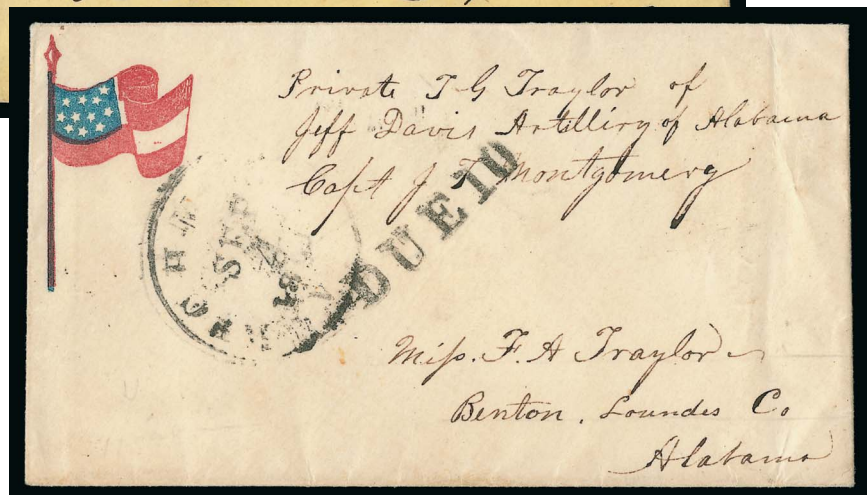 Private T G Traylor of
Jeff Davis Artilliry of Alabama
Capt J T Montgomery
DUE 10
SEP
Miss. F. A Traylor
Benton. Loundes Co
Alabama